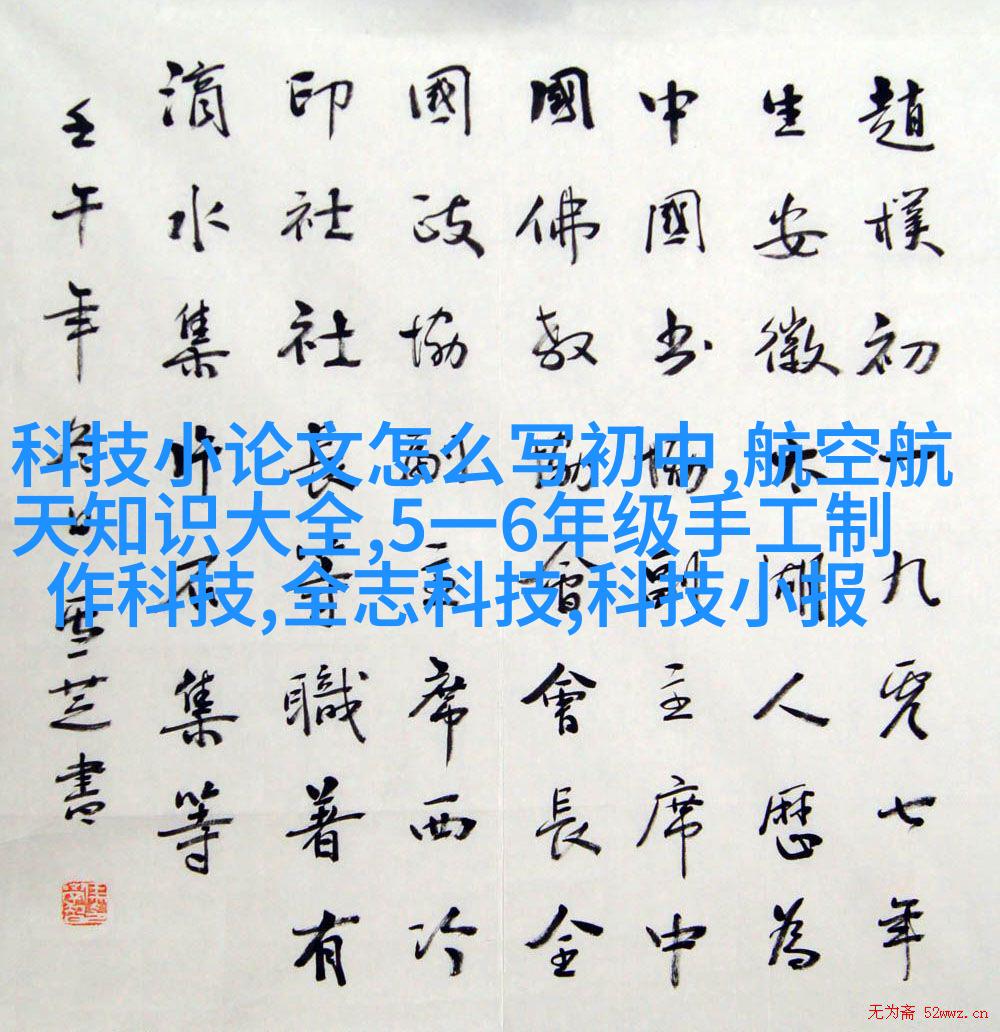 科技小论文怎么写初中,航空航
天知识大全,5一6年级手工制
作科技,全志科技,科技小报
趙樸初一九零七年
生安徽太湖人歷為
中國书協副主席中
國佛教協會會長全
國政協副主席西冷
印社社長等職著有
滴水集片石集等
壬午年雪芝書
无为斋 52wwz.cn